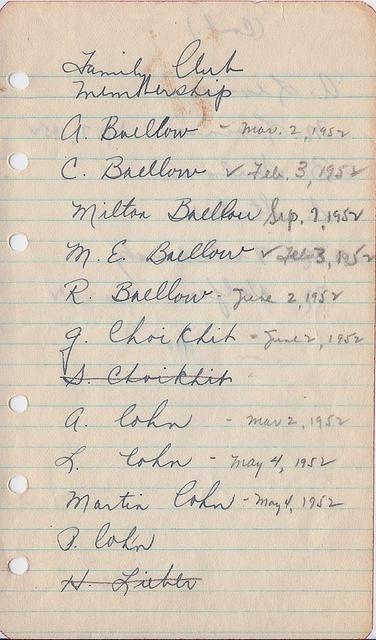 Family Club
Membership
A. Baellow - Mar. 2, 1952
C. Baellow ✓ Feb. 3, 1952
Milton Baellow Sep. 7, 1952
M. E. Baellow ✓ Feb 3, 1952
R. Baellow - June 2, 1952
J. Choikhit - June 2, 1952
S. Choikhit
A. Cohn - Mar 2, 1952
L. Cohn - May 4, 1952
Martin Cohn - May 4, 1952
P. Cohn
H. Lieber